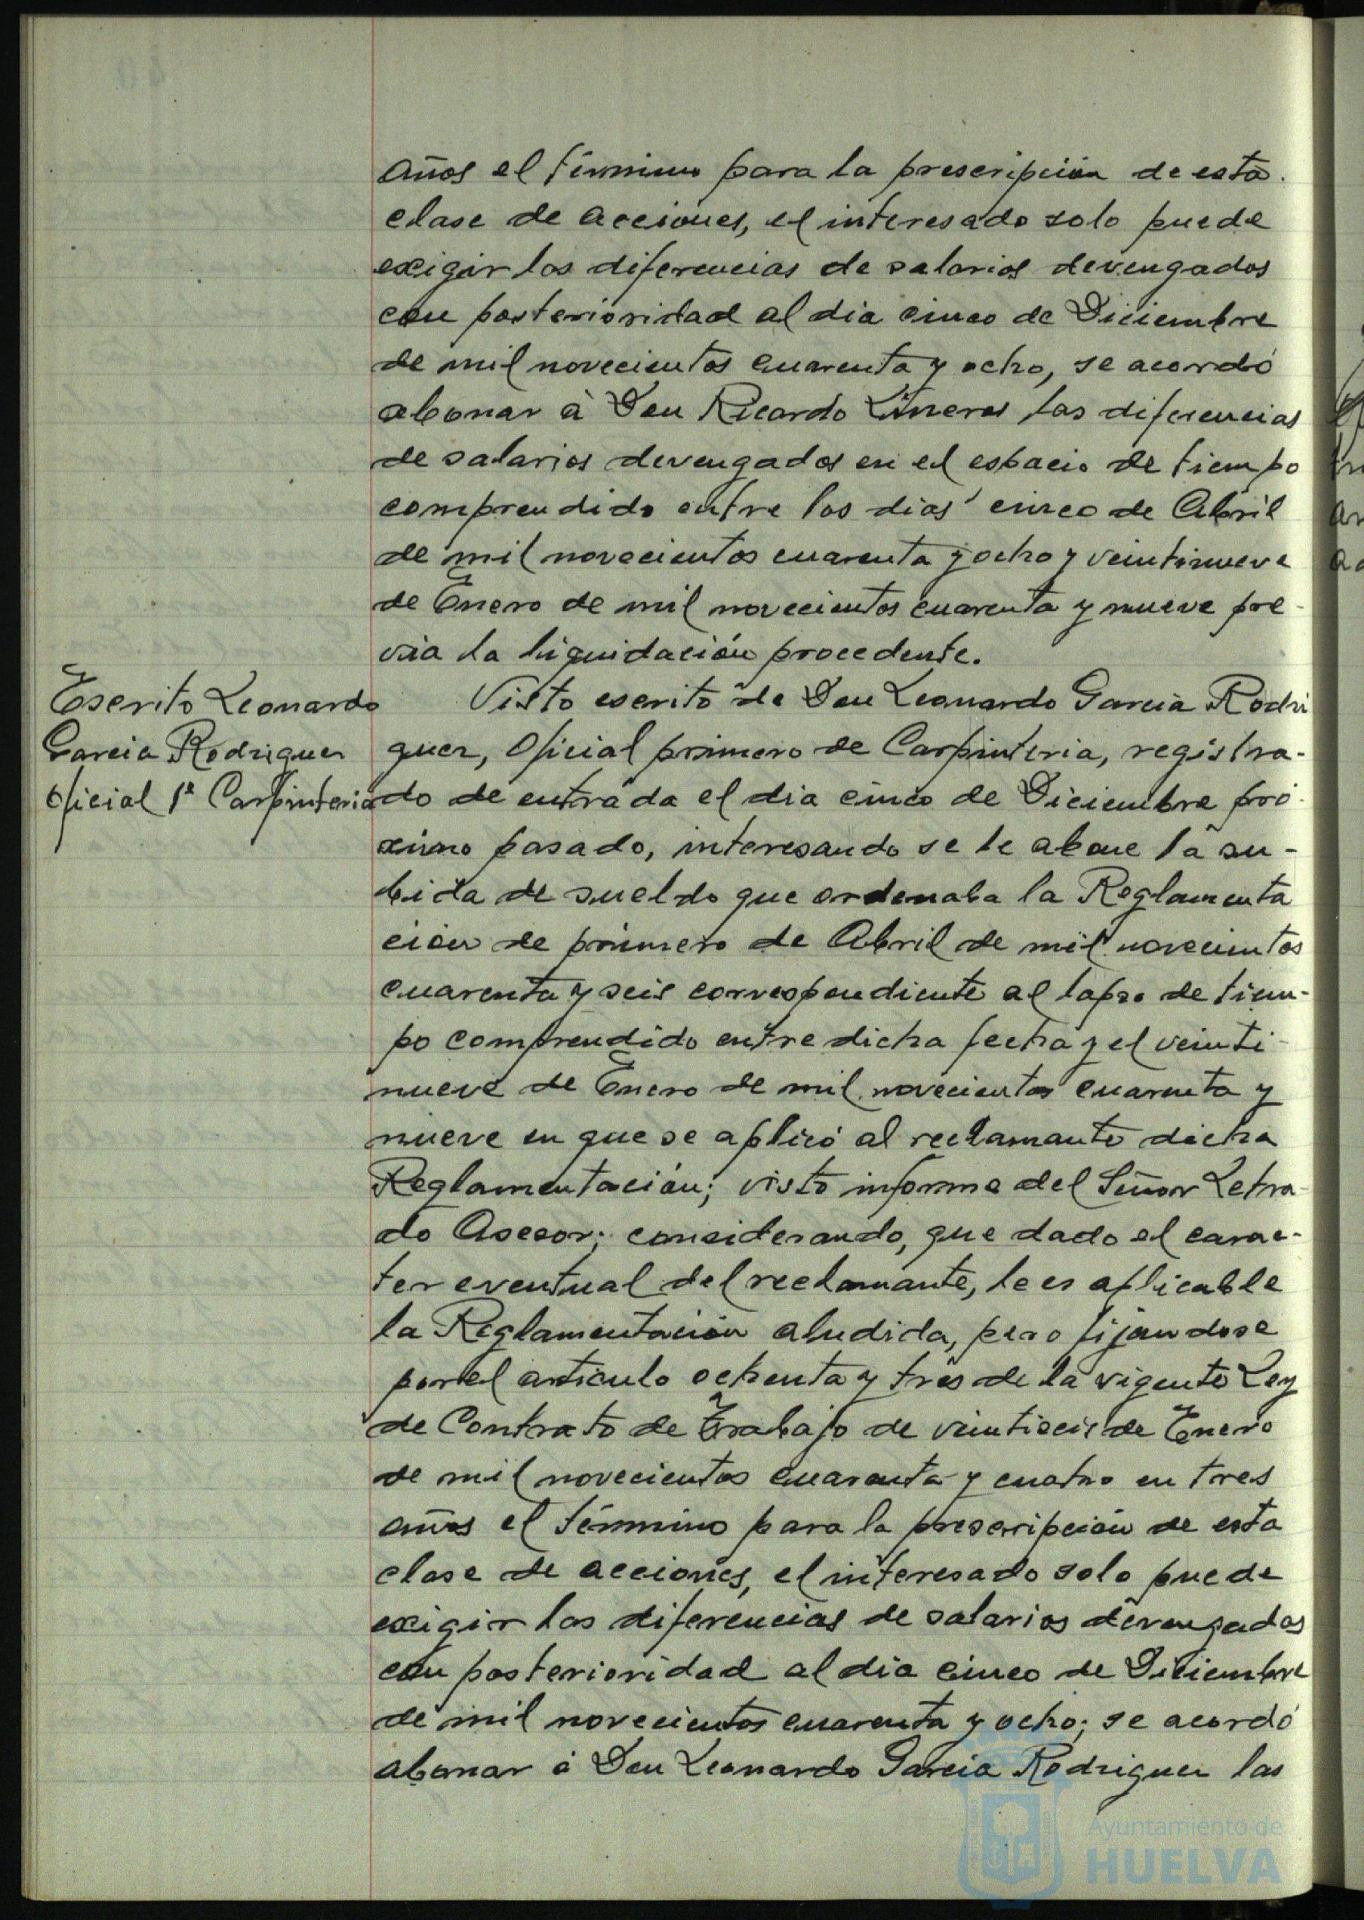 años el término para la prescripción de esta
clase de acciones, el interesado solo puede
exigir las diferencias de salarios devengados
con posterioridad al dia cinco de Diciembre
de mil novecientos cuarenta y ocho, se acordó
abonar à Don Ricardo Lineros las diferencias
de salarios devengados en el espacio de tiempo
comprendido entre los dias cinco de Abril
de mil novecientos cuarenta y ocho y veintinueve
de Enero de mil novecientos cuarenta y nueve pre-
via la liquidación procedente.
Escrito Leonardo
Garcia Rodriguez
Oficial 1ª Carpinteria
Visto escrito de Don Leonardo Garcia Rodri
guez, Oficial primero de Carpinteria, registra-
do de entrada el dia cinco de Diciembre pró-
ximo pasado, interesando se le abone la su-
bida de sueldo que ordenaba la Reglamenta
ción de primero de Abril de mil novecientos
cuarenta y seis correspondiente al lapso de tiem-
po comprendido entre dicha fecha y el veinti-
nueve de Enero de mil novecientos cuarenta y
nueve en que se aplicó al reclamante dicha
Reglamentación; visto informe del Señor Letra-
do Asesor; considerando, que dado el carac-
ter eventual del reclamante, le es aplicable
la Reglamentación aludida, pero fijandose
por el articulo ochenta y tres de la vigente Ley
de Contrato de Trabajo de veintiseis de Enero
de mil novecientos cuarenta y cuatro en tres
años el término para la prescripción de esta
clase de acciones, el interesado solo puede
exigir las diferencias de salarios devengados
con posterioridad al dia cinco de Diciembre
de mil novecientos cuarenta y ocho; se acordó
abonar á Don Leonardo Garcia Rodriguez las
Ayuntamiento de
HUELVA